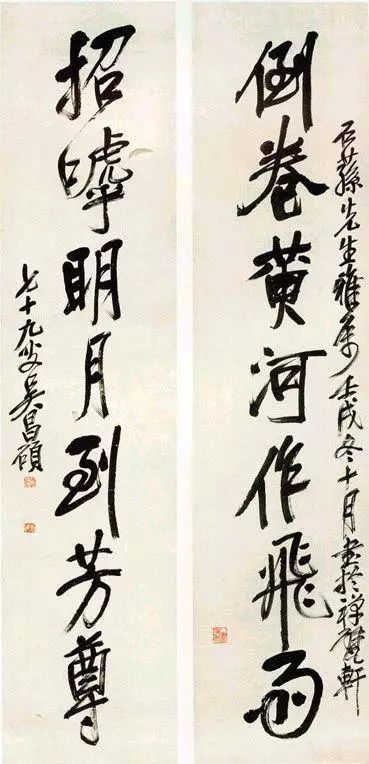 石蓀先生雅屬壬戌冬十月書於禪甓軒
倒卷黄河作飛雨
招嘑明月到芳尊
七十九叟吳昌碩